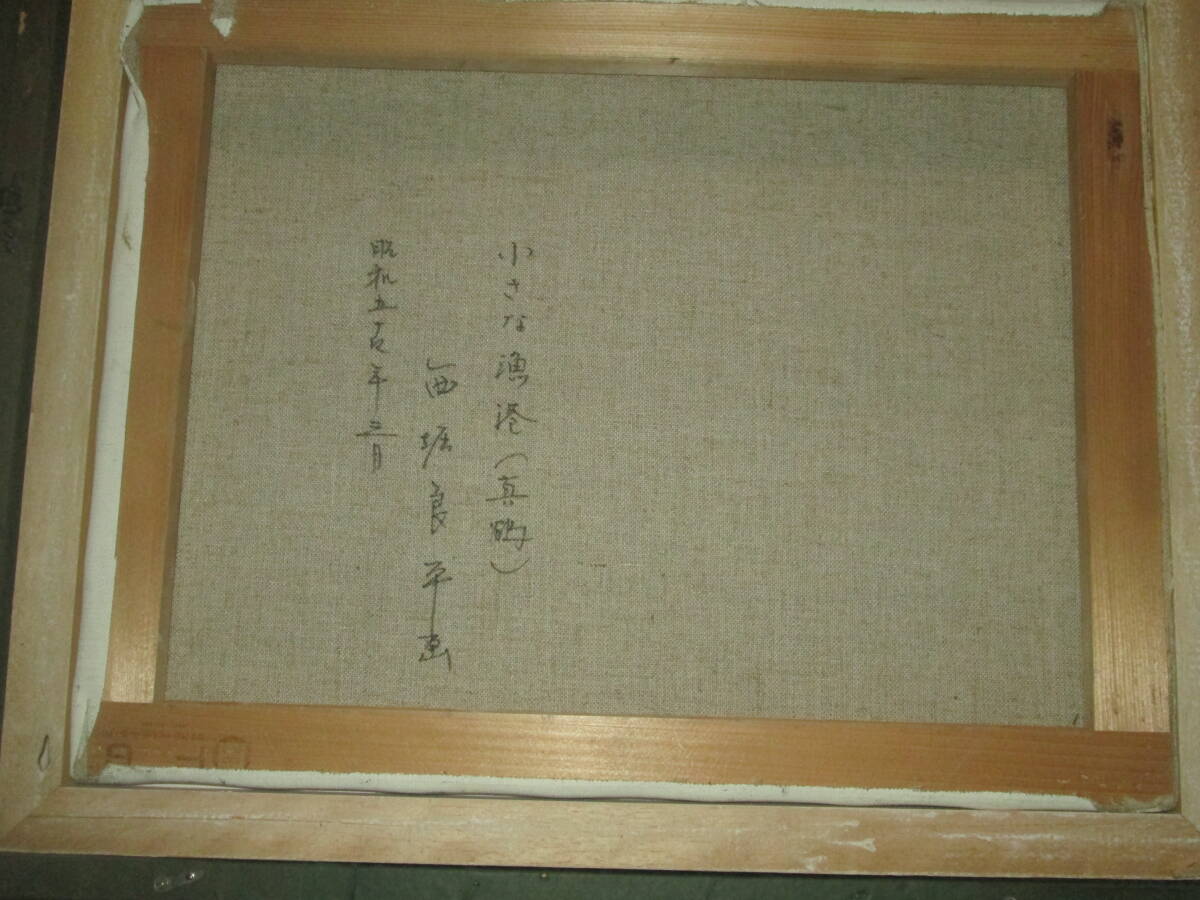 小さな漁港（真鶴）
西堀良平画
昭和五十五年三月